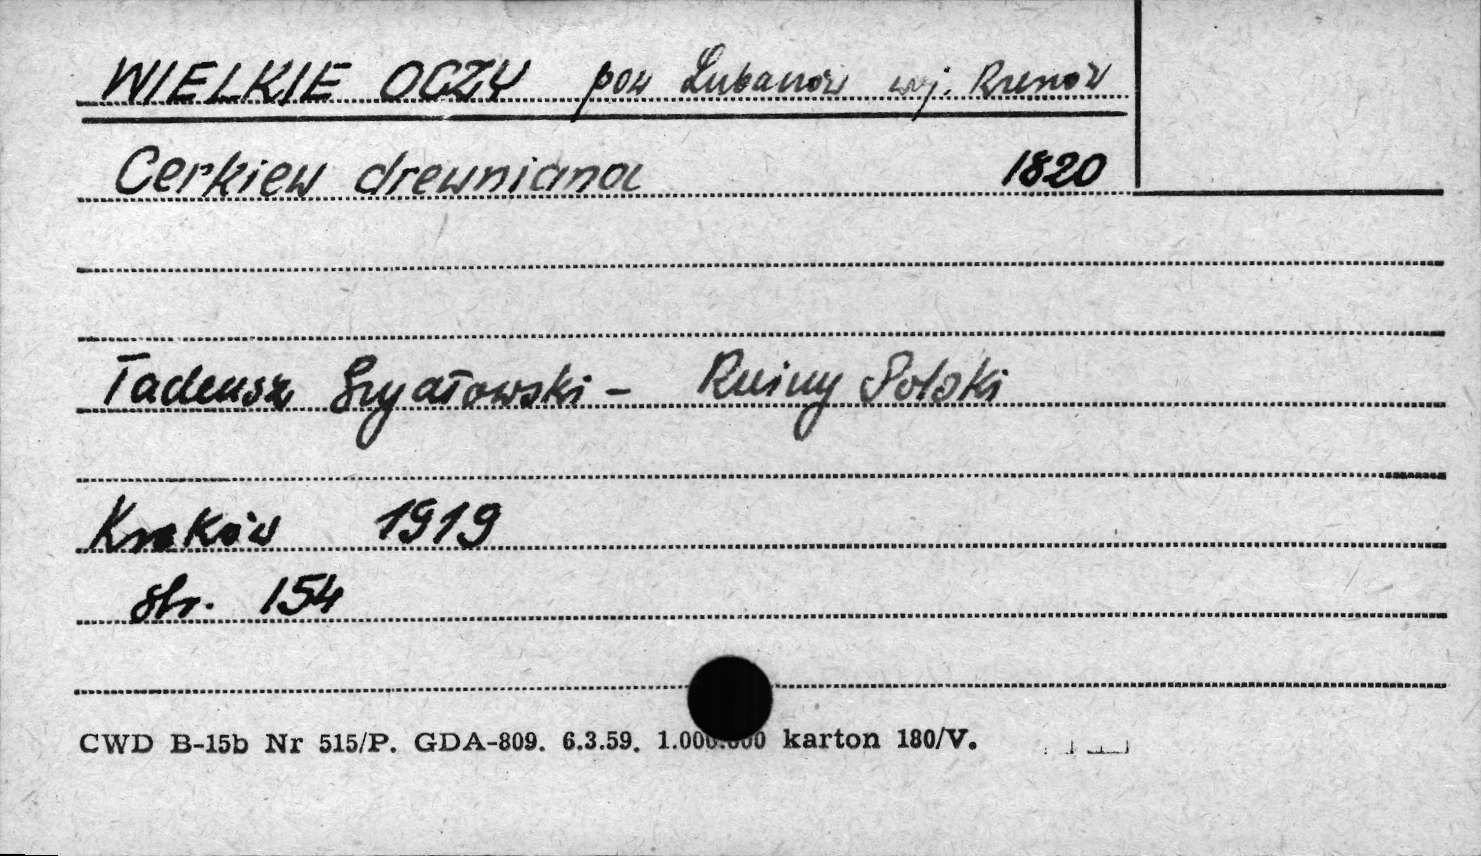 WIELKIE OCZY pow Lubaczów woj. Rzeszów
Cerkiew drewniana 1820
Tadeusz Szydłowski – Ruiny Polski
Kraków 1919
str. 154
CWD B-15b Nr 515/P. GDA-809. 6.3.59. 1.000.000 karton 180/V.